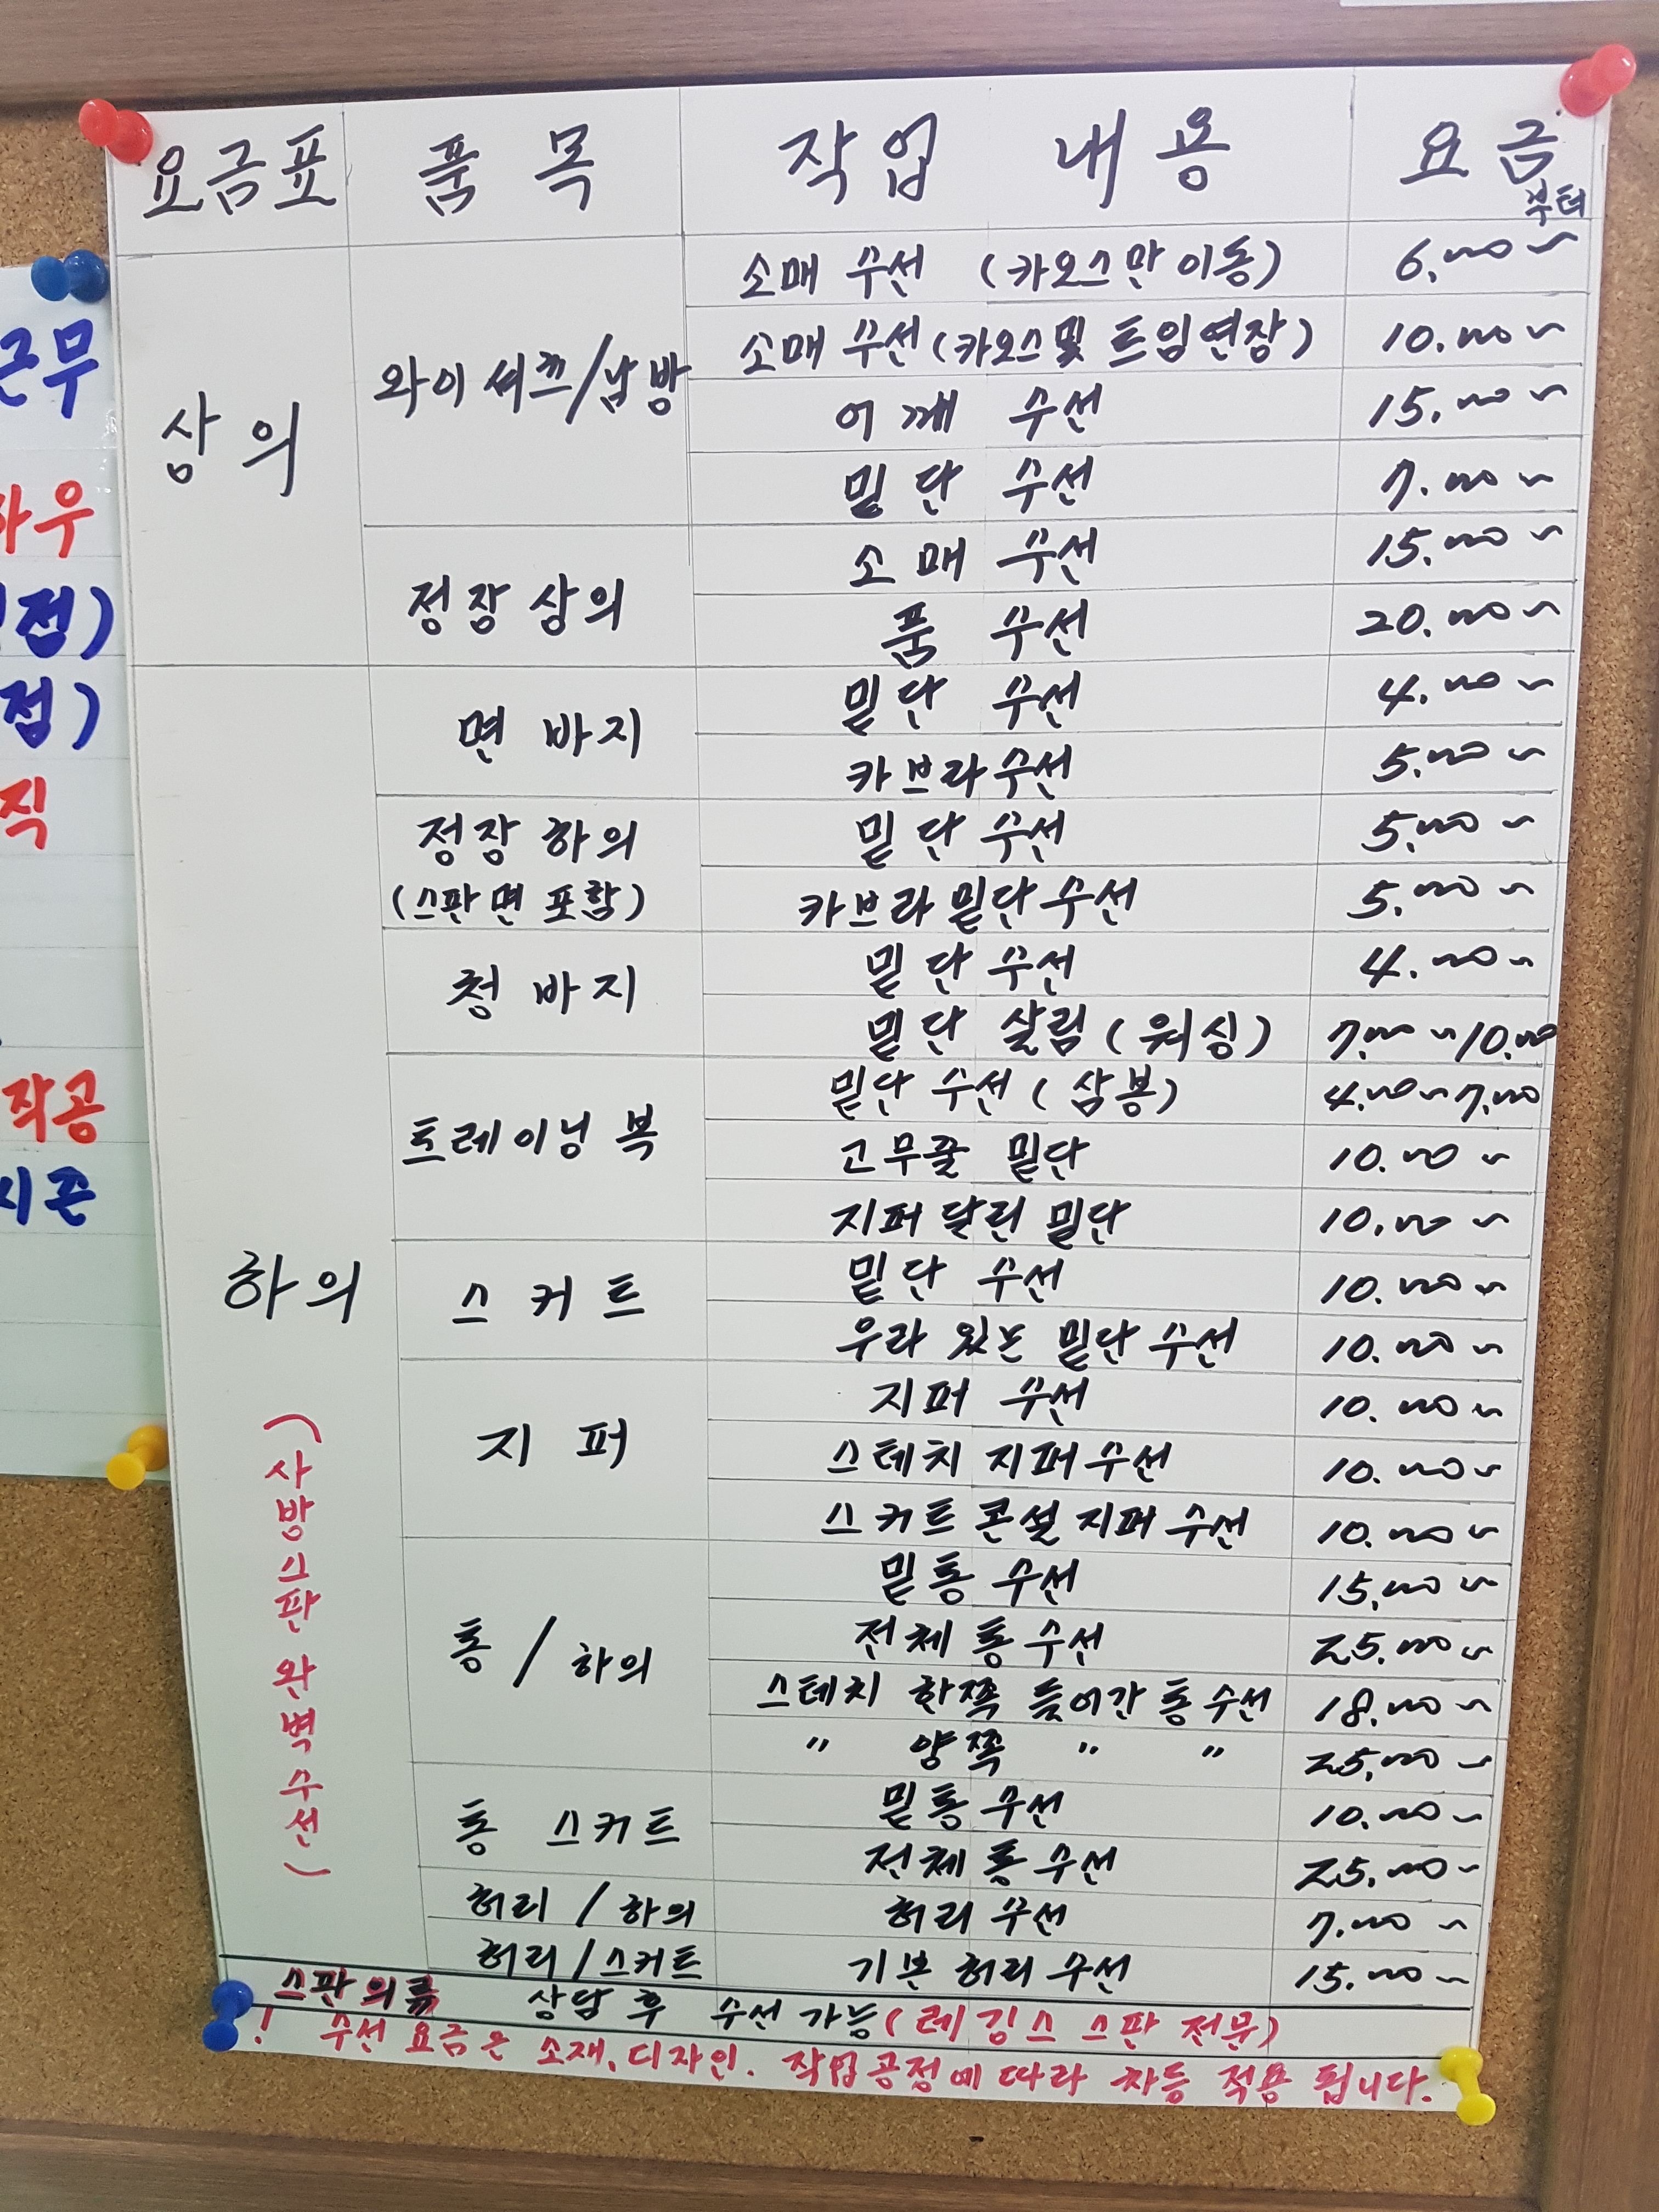 요금표 품목 작업 내용 요금 부터
상의 와이셔츠/남방 소매 수선 (카오스만 이동) 6.000~
소매 수선 (카오스및 트임연장) 10.000~
어깨 수선 15.000~
밑단 수선 7.000~
정장 상의 소매 수선 15.000~
품 수선 20.000~
하의 면바지 밑단 수선 4.000~
카브라 수선 5.000~
정장 하의 (스판면 포함) 밑단 수선 5.000~
카브라 밑단 수선 5.000~
청바지 밑단 수선 4.000~
밑단 살림 (워싱) 7.000~10.000
트레이닝 복 밑단 수선 (삼봉) 4.000~7.000
고무줄 밑단 10.000~
지퍼 달린 밑단 10.000~
스커트 밑단 수선 10.000~
우라 있는 밑단 수선 10.000~
지퍼 지퍼 수선 10.000~
스테치 지퍼 수선 10.000~
스커트 콘설 지퍼 수선 10.000~
통/하의 밑통 수선 15.000~
전체 통 수선 25.000~
스테치 한쪽 들어간 통 수선 18.000~
" 양쪽 " " 25.000~
통 스커트 밑통 수선 10.000~
전체 통 수선 25.000~
허리/하의 허리 수선 7.000~
허리/스커트 기본 허리 수선 15.000~
(사방스판 완벽수선)
스판의류 상담 후 수선 가능 (레깅스 스판 전문)
! 수선 요금은 소재, 디자인. 작업공정에 따라 차등 적용 됩니다.
근무
하우
접)
접)
직
작공
시즌